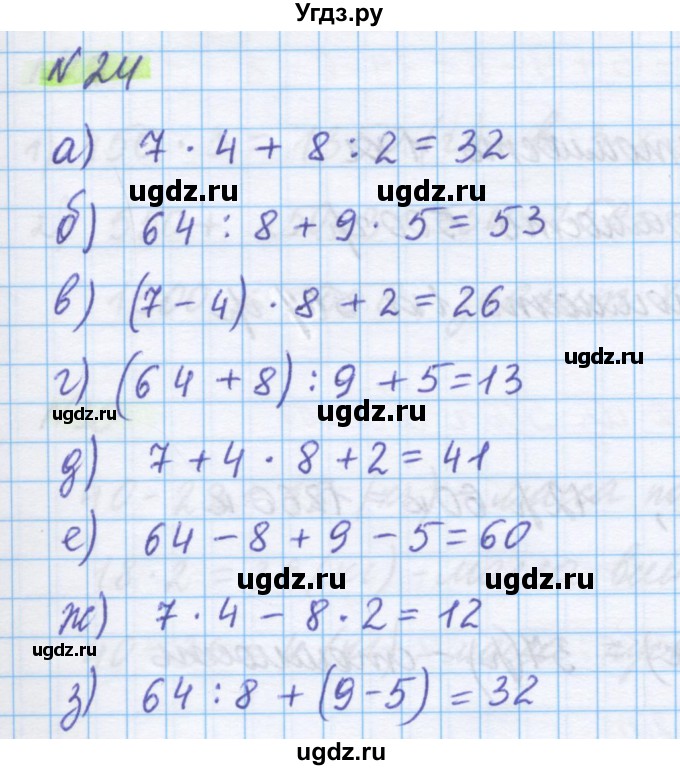 Угдз.ру
N 24
а) 7 · 4 + 8 : 2 = 32
ugdz.ru ugdz.ru
б) 64 : 8 + 9 · 5 = 53
в) (7 - 4) · 8 + 2 = 26
г) (64 + 8) : 9 + 5 = 13
ugdz.ru ugdz.ru
д) 7 + 4 · 8 + 2 = 41
е) 64 - 8 + 9 - 5 = 60
ugdz.ru
ж) 7 · 4 - 8 · 2 = 12
ugdz.ru
з) 64 : 8 + (9 - 5) = 32
ugdz.ru